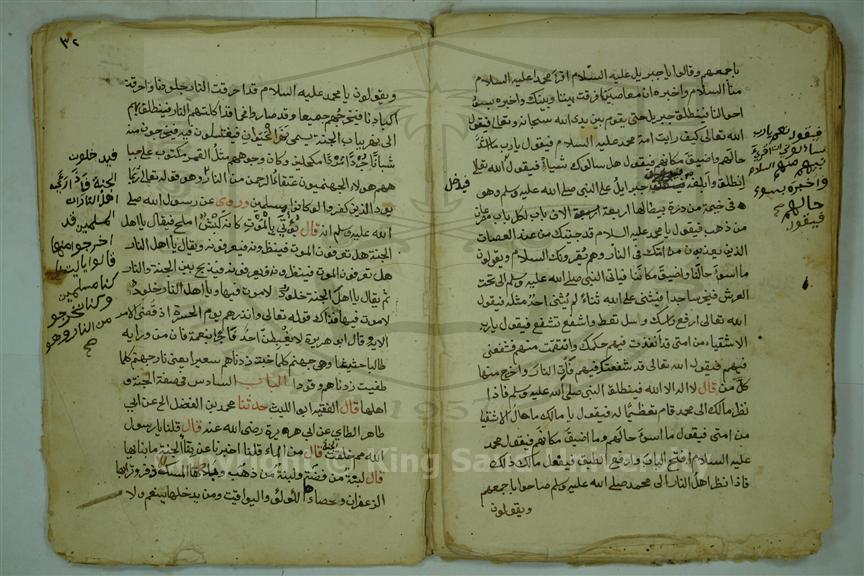 باجمعهم وقالوا يا جبريل عليه السلام اقرأ محمدا عليه السلام
منا السلام واخبره ان معاصينا فرقت بيننا وبينك واخبره بسوء
احوالنا فينطلق جبريل حتى يقوم بين يدى الله سبحانه وتعالى فيقول
الله تعالى كيف رايت امة محمد عليه السلام فيقول يا رب ما اسوأ
حالهم واضيق مكانهم فيقول هل سألوك شيأ فيقول الله تعالى
انطلق وابلغه فيدخل جبرايل على النبى صلى الله عليه وسلم وهو
فى خيمة من درة بيضا لها اربعة الاف باب لكل باب مصراعان
من ذهب فيقول يا محمد عليه السلام قد جئتك من عند العصات
الذين يعذبون من امتك فى النار وهم يقرءونك السلام ويقولون
ما اسوأ حالنا واضيق مكاننا فياتى النبى صلى الله عليه وسلم الى تحت
العرش فيخر ساجدا ويثنى على الله ثناء لم يثنى احد مثله فيقول
الله تعالى ارفع راسك وسل تعط واشفع تشفع فيقول يا رب
الاشقياء من امتى قد انفذت فيهم حكمك وانتقمت منهم فشفعنى
فيهم فيقول الله تعالى قد شفعتك فيهم فأت النار واخرج منها
كل من قال لا اله الا الله فينطلق النبى صلى الله عليه وسلم فاذا
نظر مالك الى محمد قام تعظيما له فيقول يا مالك ما حال الاشقيا
من امتى فيقول ما اسوأ حالهم وما اضيق مكانهم فيقول محمد
عليه السلام افتح الباب وارفع الطبق فيفعل مالك ذلك
فاذا نظر اهل النار الى محمد صلى الله عليه وسلم صاحوا باجمعهم
ويقولون
فيقول نعم يا رب
السلام
واخبره بسوء
حالهم
فيقول
فيدخل
٣٢
ويقولون يا محمد عليه السلام قد احرقت النار جلودنا واحرقت
اكبادنا فيخرجهم جميعا وقد صاروا فحما قد اكلتهم النار فينطلق بهم
الى نهر بباب الجنة يسمى نهر الحيوان فيغتسلون فيه فيخرجون منه
شبانا جردا مردا مكحلين وكان وجوههم مثل القمر ومكتوب على جباههم
هم هولاء الجهنميون عتقاء الرحمن من النار وهو قوله تعالى ربما
يود الذين كفروا لو كانوا مسلمين وروى عن رسول الله صلى
الله عليه وسلم انه قال يؤتى بالموت كانه كبش املح فيقال يا اهل
الجنة هل تعرفون الموت فينظرونه فيعرفونه ويقال يا اهل النار
هل تعرفون الموت فينظرونه فيعرفونه فيذبح بين الجنة والنار
ثم يقال يا اهل الجنة خلود لا موت فيها ويا اهل النار خلود
لا موت فيها فذلك قوله تعالى وانذرهم يوم الحسرة اذ قضى الامر
الاية وقال ابو هريرة لا يغبطن احد فاجرا بنعمة فان من ورايه
طالبا حثيثا وهى جهنم كلما خبت زدناهم سعيرا يعنى نار جهنم كلما
طفيت زدناهم وقودا الباب السادس فى صفة الجنة و
اهلها قال الفقيه ابو الليث حدثنا محمد بن الفضل الخ عن ابى
طاهر الطاى عن ابى هريرة رضى الله عنه قال قلنا يا رسول
الله مم خلقت الجنة قال من الماء قلنا اخبرنا عن بناء الجنة ما بناؤها
قال لبنة من فضة ولبنة من ذهب وملاطها المسك وترابها
الزعفران وحصاؤها اللؤلؤ واليواقيت ومن يدخلها ينعم ولا
فيدخلون
الجنة فاذا راى
اهل النار ان
المسلمين قد
اخرجوا منها
قالوا يا ليتنا
كنا مسلمين
وكنا نخرج
من النار وهو
Copyright © King Saud University
1957